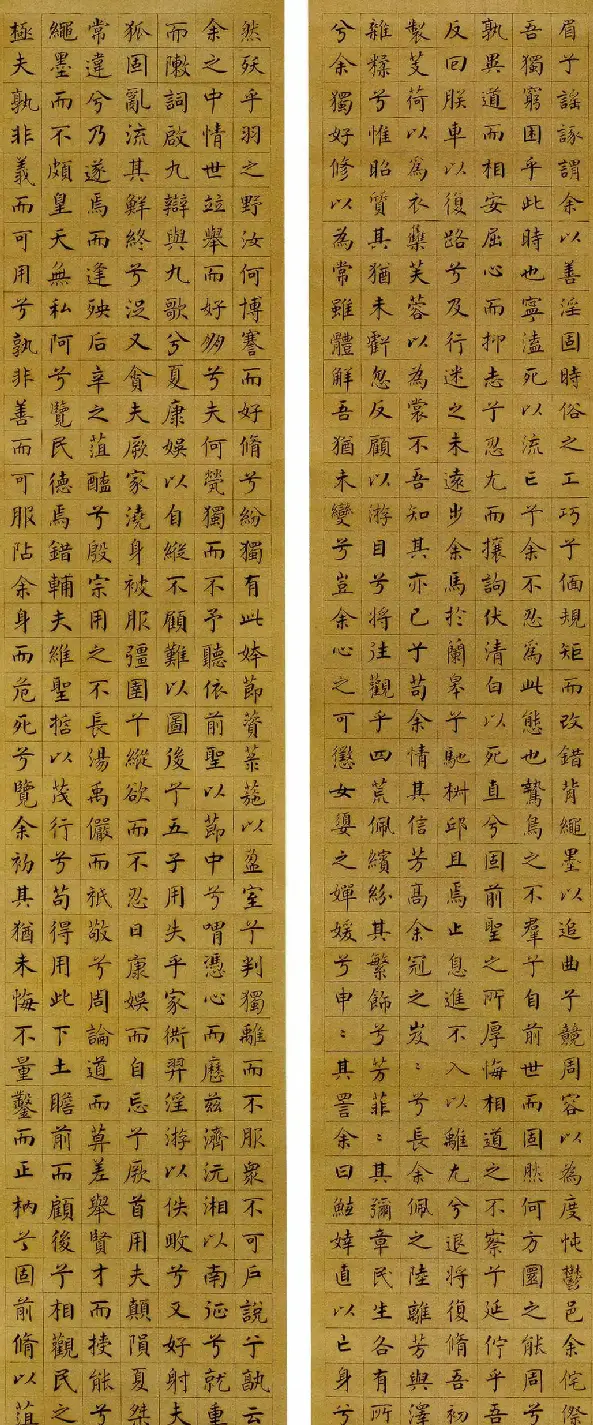 眉兮謠諑謂余以善淫固時俗之工巧兮偭規矩而改錯背繩墨以追曲兮競周容以為度忳鬱邑余侘傺
吾獨窮困乎此時也寧溘死以流亡兮余不忍為此態也鷙鳥之不羣兮自前世而固然何方圜之能周兮
孰異道而相安屈心而抑志兮忍尤而攘詢伏清白以死直兮固前聖之所厚悔相道之不察兮延佇乎吾
反回朕車以復路兮及行迷之未遠步余馬於蘭皋兮馳椒邱且焉止息進不入以離尤兮退將復脩吾初
製芰荷以為衣集芙蓉以為裳不吾知其亦已兮苟余情其信芳高余冠之岌：兮長余佩之陸離芳與澤
雜糅兮惟昭質其猶未虧忽反顧以游目兮將往觀乎四荒佩繽紛其繁飾兮芳菲：其彌章民生各有所
兮余獨好修以為常雖體解吾猶未變兮豈余心之可懲女嬃之嬋媛兮申：其詈余曰鮌婞直以亡身兮
然殀乎羽之野汝何博謇而好脩兮紛獨有此姱節薋菉葹以盈室兮判獨離而不服衆不可戶說兮孰云
余之中情世並舉而好朋兮夫何煢獨而不予聽依前聖以節中兮喟憑心而歷茲濟沅湘以南征兮就重
而敶詞啟九辯與九歌兮夏康娛以自縱不顧難以圖後兮五子用失乎家衖羿淫游以佚畋兮又好射夫
狐固亂流其鮮終兮浞又貪夫厥家澆身被服彊圉兮縱欲而不忍日康娛而自忘兮厥首用夫顛隕夏桀
常違兮乃遂焉而逢殃后辛之菹醢兮殷宗用之不長湯禹儼而祗敬兮周論道而莫差舉賢才而授能兮
繩墨而不頗皇天無私阿兮覽民德焉錯輔夫維聖哲以茂行兮苟得用此下土瞻前而顧後兮相觀民之
極夫孰非義而可用兮孰非善而可服阽余身而危死兮覽余初其猶未悔不量鑿而正枘兮固前脩以菹